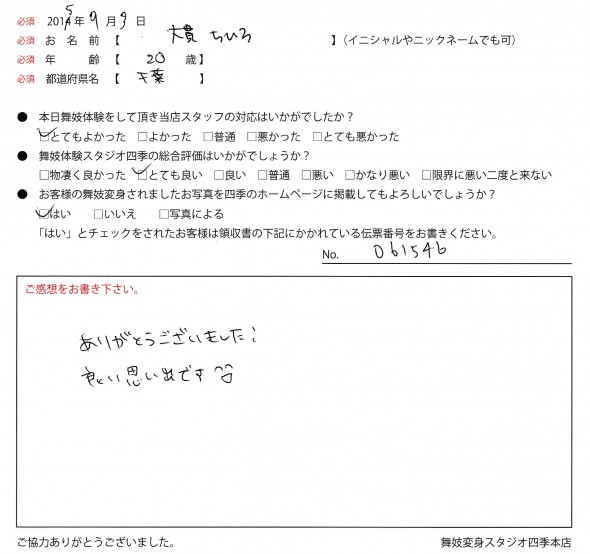 必須 2015年 9月 9日
必須 お名前【 大貫 ちひろ 】(イニシャルやニックネームでも可)
必須 年齢【 20 歳】
必須 都道府県名【 千葉 】
● 本日舞妓体験をして頂き当店スタッフの対応はいかがでしたか?
☑とてもよかった □よかった □普通 □悪かった □とても悪かった
● 舞妓体験スタジオ四季の総合評価はいかがでしょうか?
□物凄く良かった ☑とても良い □良い □普通 □悪い □かなり悪い □限界に悪い二度と来ない
● お客様の舞妓変身されましたお写真を四季のホームページに掲載してもよろしいでしょうか?
☑はい □いいえ □写真による
「はい」とチェックをされたお客様は領収書の下記にかかれている伝票番号をお書きください。
No. 061546
ご感想をお書き下さい。
ありがとうございました!
良い思い出です
ご協力ありがとうございました。 舞妓変身スタジオ四季本店